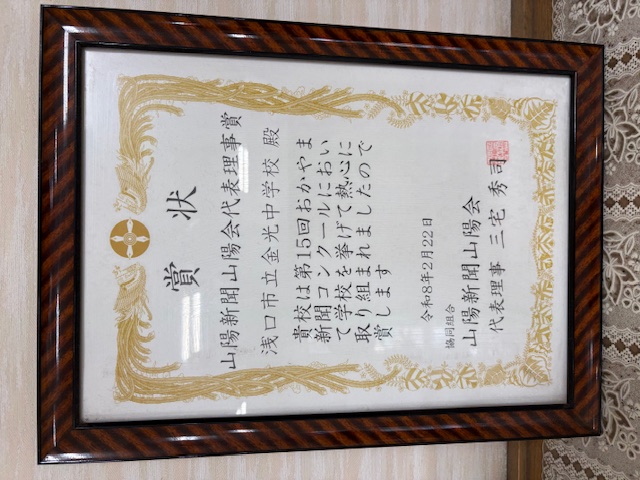 賞状
山陽新聞山陽会代表理事賞
浅口市立金光中学校 殿
貴校は第15回おかやま
新聞コンクールにおい
て学校を挙げて熱心に
取り組まれましたので
賞します
令和8年2月22日
協同組合
山陽新聞山陽会
代表理事 三宅 秀司